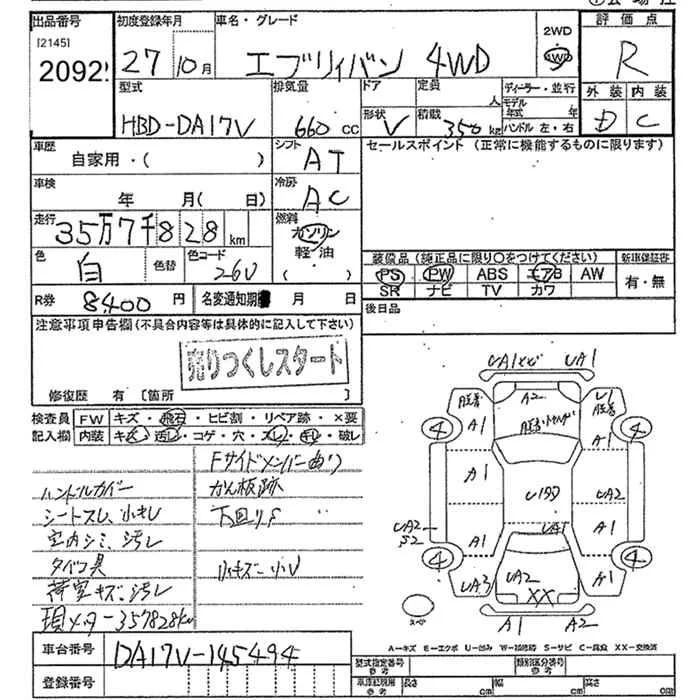 出品番号
初度登録年月
車名・グレード
2WD
4WD
評価点
[2145]
2092
27 10月
エブリイバン 4WD
R
外装 内装
D C
型式
排気量
ドア
定員
人
ディーラー・並行
モデル年式 年
HBD-DA17V
660 cc
形状
V
積載
350 kg
ハンドル 左・右
車歴
自家用・( )
シフト
AT
セールスポイント (正常に機能するものに限ります)
車検
年 月( 日)
冷房
AC
走行
35万7千828 km
燃料
ガソリン
軽・油
( )
色
白
色替
色コード
26U
装備品 (純正品に限り○をつけてください)
新車保証書
PS PW ABS エアB AW
SR ナビ TV カワ
有・無
R券
8,400 円
名変通知期限 月 日
後日品
注意事項申告欄 (不具合内容等は具体的に記入して下さい)
売りつくしスタート
修復歴 有 [箇所 ]
検査員
記入欄
FW キズ・飛石・ヒビ割・リペア跡・×要
内装 キズ・汚レ・コゲ・穴・スレ・キレ・破レ
Fサイドメンバー曲り
ハンドルカバー
かん板跡
シートスレ、小キレ
下回りS
室内シミ、汚レ
タバコ臭
小キズ・小U
荷室キズ、汚レ
現メーター357828km
UA1
UA1
A2
U1
A1
A1
4
4
A1
UA2
UA2
S2
UA1
A1
A1
4
4
UA3
UA2
XX
A1
A1
A2
スペア
A…キズ E…エクボ U…凹み W…補修跡 S…サビ C…腐食 XX…交換済
車台番号
DA17V-145494
登録番号
型式指定番号
参考
類別区分番号
参考
車庫証明用
参考
長さ cm
幅 cm
高さ cm